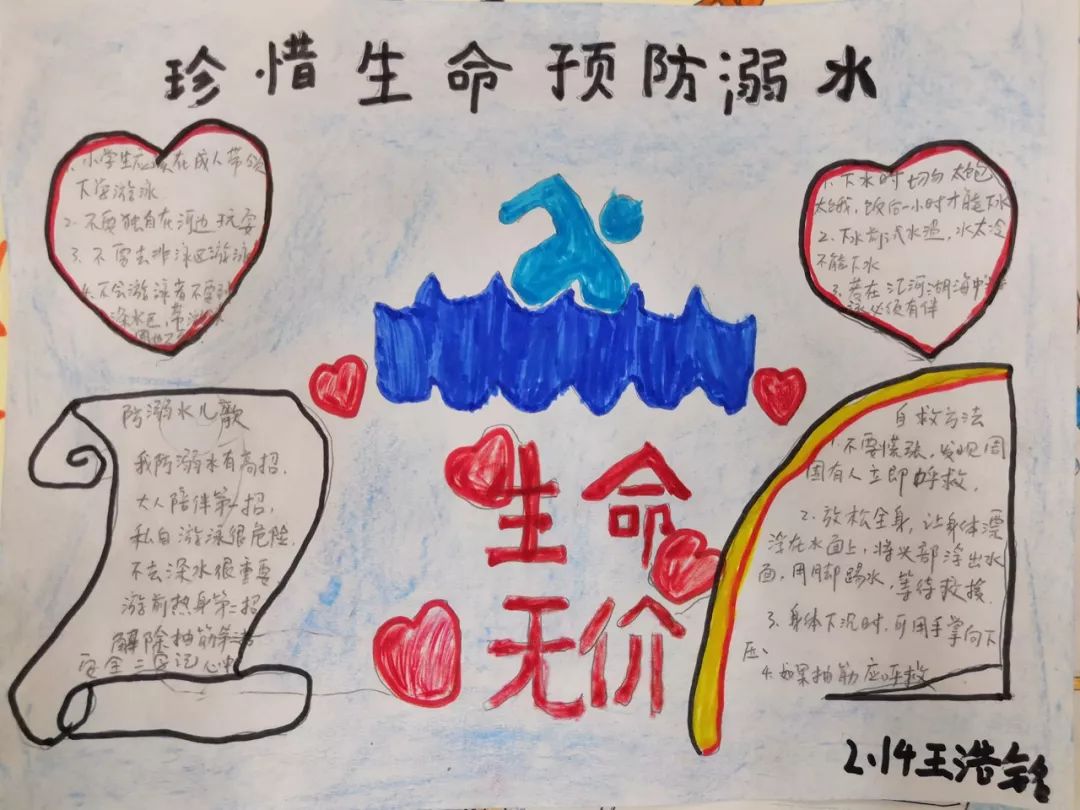 珍惜生命预防溺水
1.小学生应该在成人带领
下学游泳
2.不要独自在河边玩耍
3.不要去非泳区游泳
4.不会游泳者不要到
深水区，带
1.下水时切勿太饱
太饿，饭后一小时才能下水
2.下水前试水温，水太冷
不能下水
3.若在江河湖海中游
泳必须有伴
防溺水儿歌
我防溺水有高招，
大人陪伴第一招，
私自游泳很危险，
不去深水很重要
游前热身第二招
解除抽筋第三招
安全三
记心中
生命
无价
自救方法
1.不要慌张，发现周
围有人立即呼救，
2.放松全身，让身体漂
浮在水面上，将头部浮出水
面，用脚踢水，等待救援.
3.身体下沉时，可用手掌向下
压、
4.如果抽筋应呼救
2.14王浩